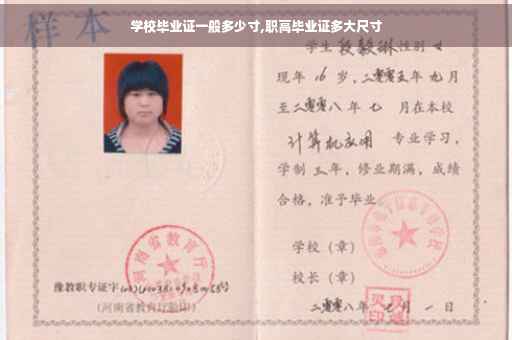 学校毕业证一般多少寸,职高毕业证多大尺寸
样本
学生段毅琳性别女
现年16岁,二零零五年九月
至二零零八年七月在本校
计算机应用 专业学习,
学制三年,修业期满,成绩
合格,准予毕业
学校(章)
校长(章)
二零零八年七月一日
河南省教育厅
豫教职专证字
(河南省教育厅验印)